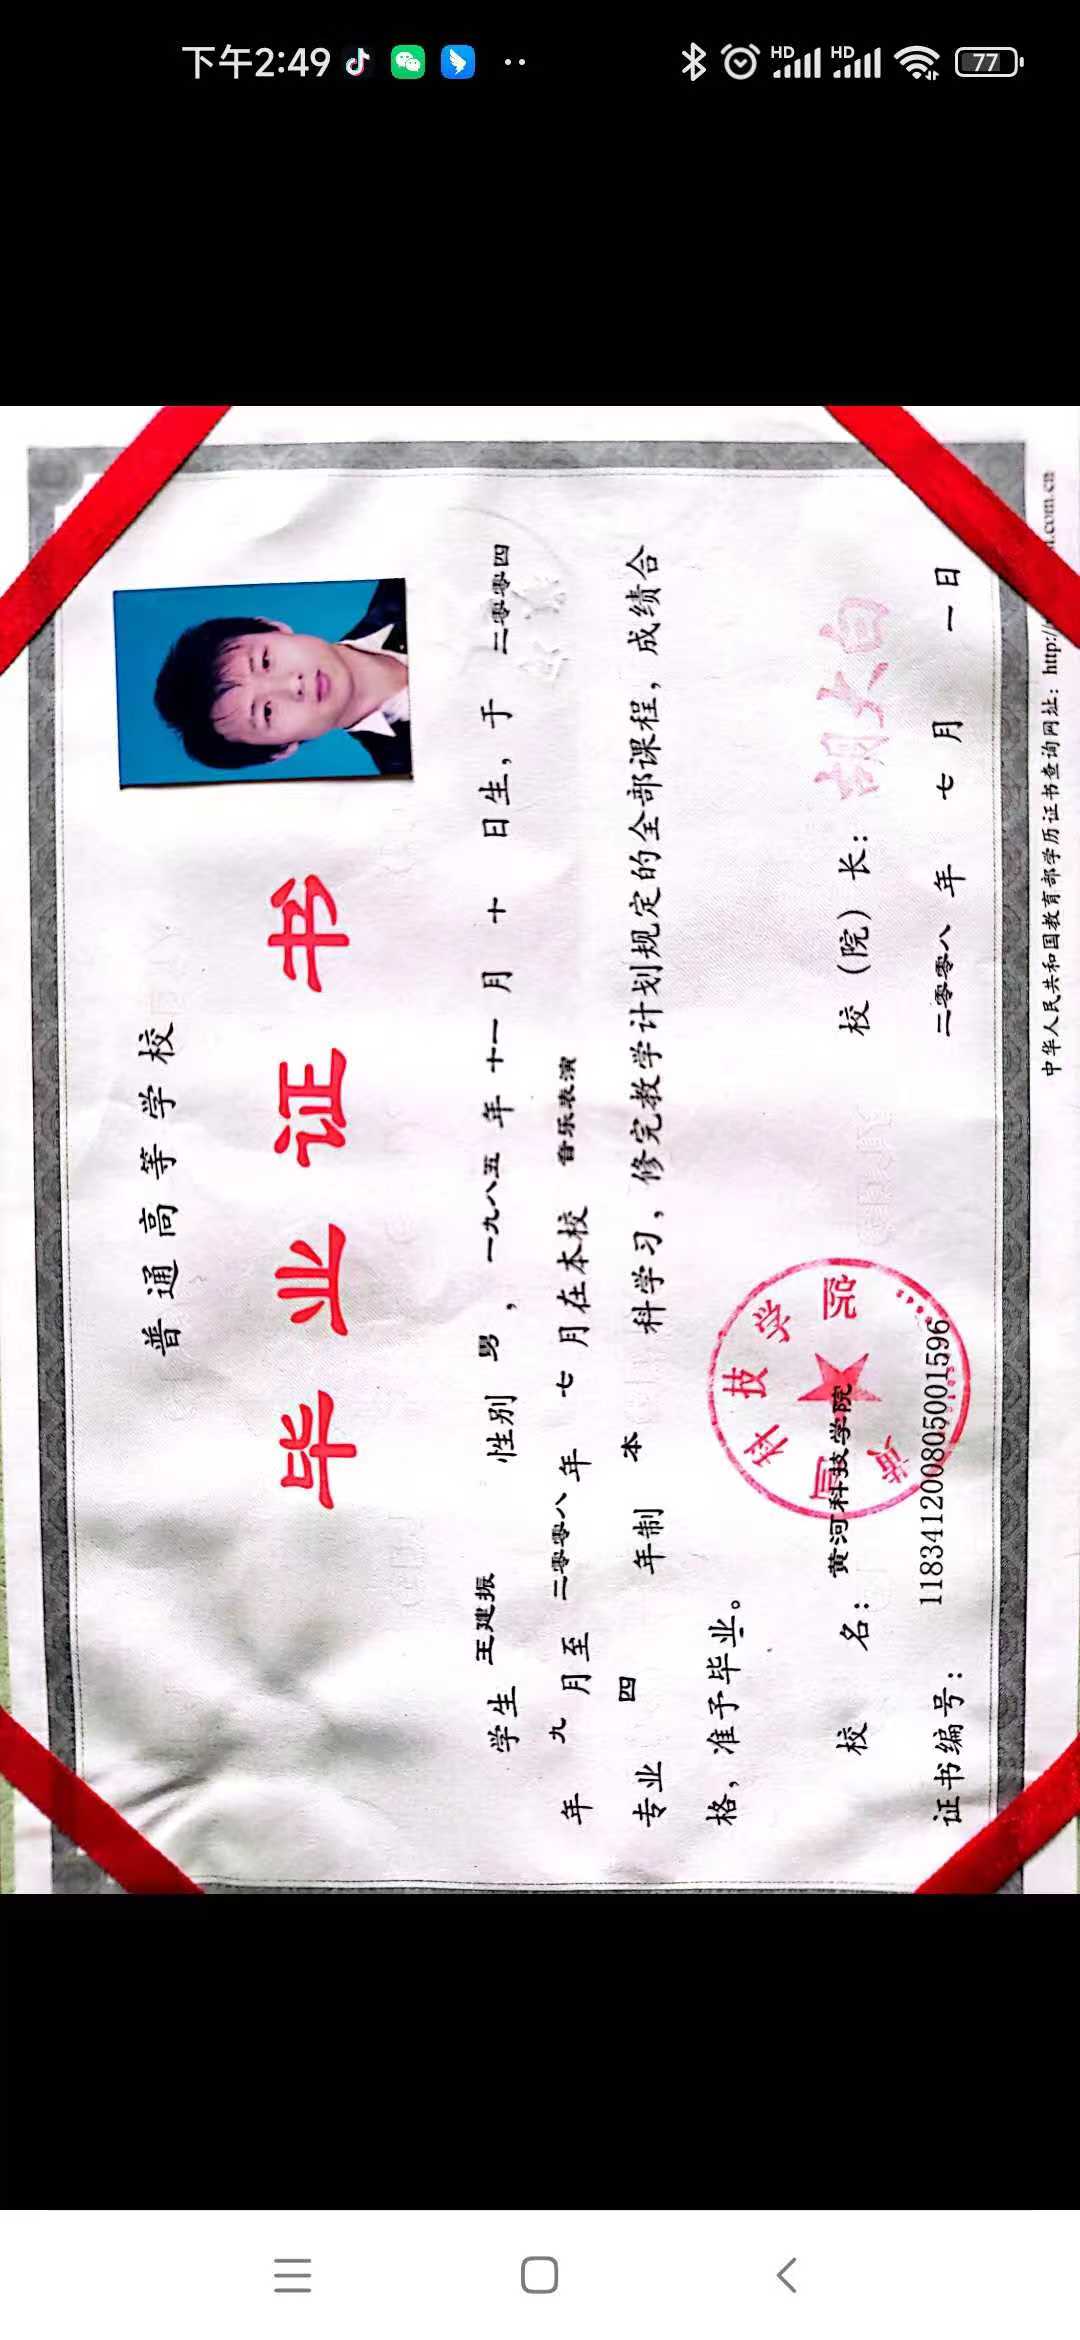 下午2:49
HD
HD
77
普通高等学校
毕业证书
学生 王建振 性别 男，一九八五年十一月十日生，于二零零四
年九月至二零零八年七月在本校 音乐表演
专业 四 年制 本 科学习，修完教学计划规定的全部课程，成绩合
格，准予毕业。
校 名：黄河科技学院
校（院）长：胡大白
证书编号：118341200805001596
二零零八年七月一日
科技学院
中华人民共和国教育部学历证书查询网址：http:/
.com.cn